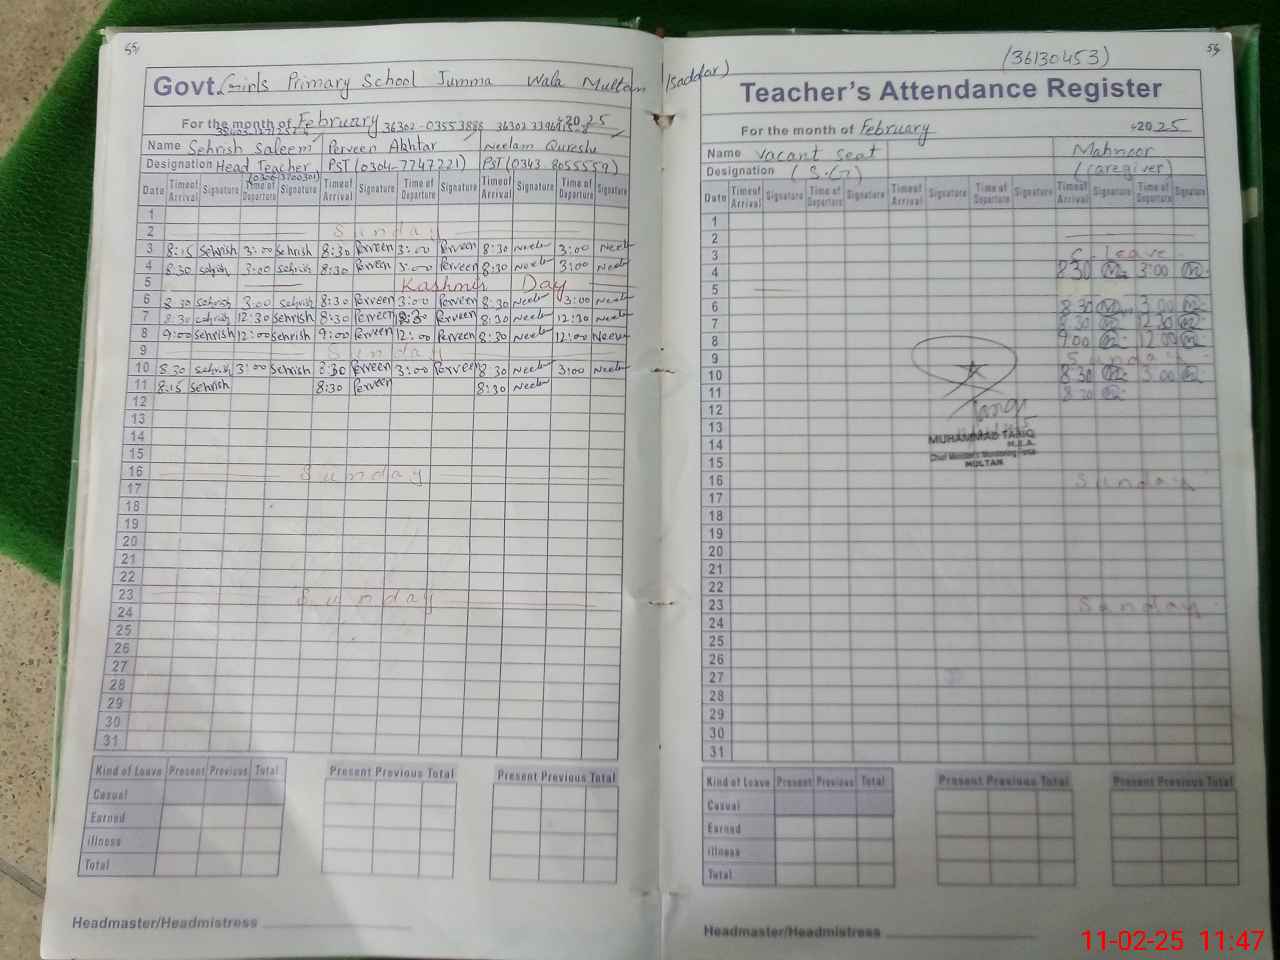 55
Govt. Girls Primary School Jumma Wala Multan (saddar)
For the month of February 2025
36302-0355388
Name Sehrish Saleem Perveen Akhtar Neelam Qureshi
Designation Head Teacher PST (0304-7747221) PST (0343 8055559)
Date Time of Arrival Signature Time of Departure Signature Time of Arrival Signature Time of Departure Signature Time of Arrival Signature Time of Departure Signature
1
2 Sunday
3 8:15 Sehrish 3:00 Sehrish 8:30 Perveen 3:00 Perveen 8:30 Neelam 3:00 Neelam
4 8:30 Sehrish 3:00 Sehrish 8:30 Perveen 3:00 Perveen 8:30 Neelam 3:00 Neelam
5 Kashmir Day
6 8:30 Sehrish 3:00 Sehrish 8:30 Perveen 3:00 Perveen 8:30 Neelam 3:00 Neelam
7 8:30 Sehrish 12:30 Sehrish 8:30 Perveen 12:30 Perveen 8:30 Neelam 12:30 Neelam
8 9:00 Sehrish 12:00 Sehrish 9:00 Perveen 12:00 Perveen 8:30 Neelam 12:00 Neelam
9 Sunday
10 8:30 Sehrish 3:00 Sehrish 8:30 Perveen 3:00 Perveen 8:30 Neelam 3:00 Neelam
11 8:15 Sehrish 8:30 Perveen 8:30 Neelam
12
13
14
15
16 Sunday
17
18
19
20
21
22
23 Sunday
24
25
26
27
28
29
30
31
Kind of Leave Present Previous Total Present Previous Total Present Previous Total
Casual
Earned
illness
Total
Headmaster/Headmistress
(36130453)
Teacher's Attendance Register
For the month of February 2025
Name Vacant Seat Mahnoor
Designation (S.G) (caregiver)
Date Time of Arrival Signature Time of Departure Signature Time of Arrival Signature Time of Departure Signature Time of Arrival Signature Time of Departure Signature
1
2
3 C. Leave
4 8:30 3:00
5
6 8:30 3:00
7 8:30 12:30
8 9:00 12:00
9 Sunday
10 8:30 3:00
11 8:30
12
13
14
15
MUHAMMAD TARIQ
M.E.A.
Chief Minister's Monitoring Force
MULTAN
16 Sunday
17
18
19
20
21
22
23 Sunday
24
25
26
27
28
29
30
31
Kind of Leave Present Previous Total Present Previous Total Present Previous Total
Casual
Earned
illness
Total
Headmaster/Headmistress
11-02-25 11:47